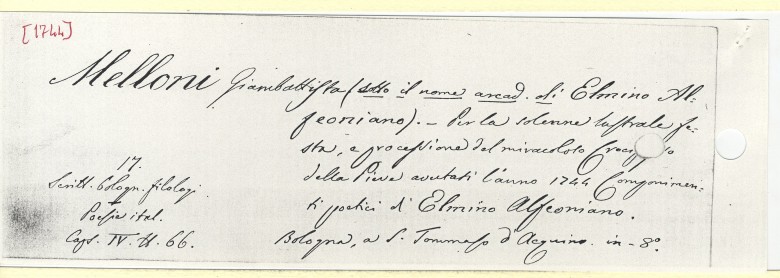 [1744]
Melloni Giambattista (sotto il nome arcad. di Elmino Al-
feoniano). – Per la solenne lustrale fe-
sta, e processione del miracoloso
della Pieve avutasi l'anno 1744 Componimen-
ti poetici di Elmino Alfeoniano.
Bologna, a S. Tommaso d'Acquino. in-8º.
17.
Scritt. bologn. filologi
Poesie ital.
Caps. IV. N. 66.